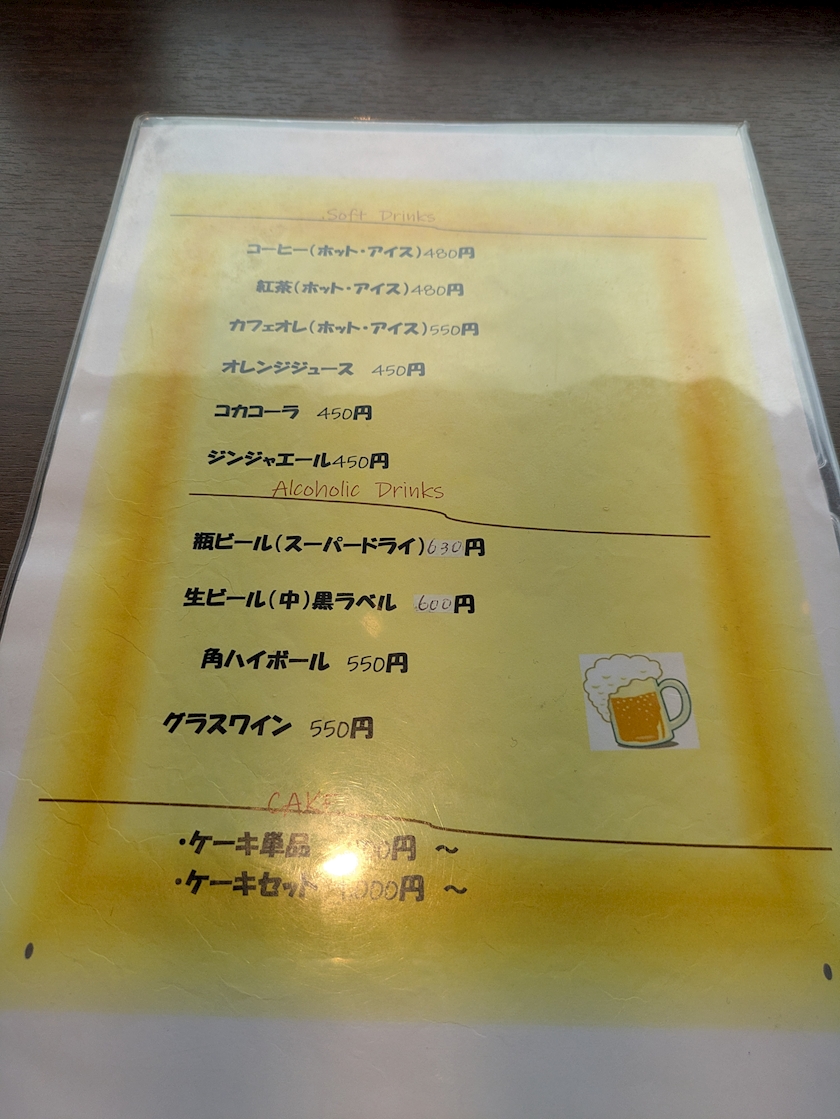 Soft Drinks
コーヒー(ホット・アイス)480円
紅茶(ホット・アイス)480円
カフェオレ(ホット・アイス)550円
オレンジジュース 450円
コカコーラ 450円
ジンジャエール450円
Alcoholic Drinks
瓶ビール(スーパードライ)630円
生ビール(中)黒ラベル 600円
角ハイボール 550円
グラスワイン 550円
CAKE
・ケーキ単品 円 ～
・ケーキセット 円 ～